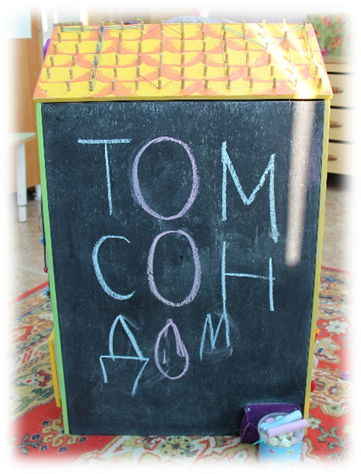 ТОМ
СОН
ДОМ